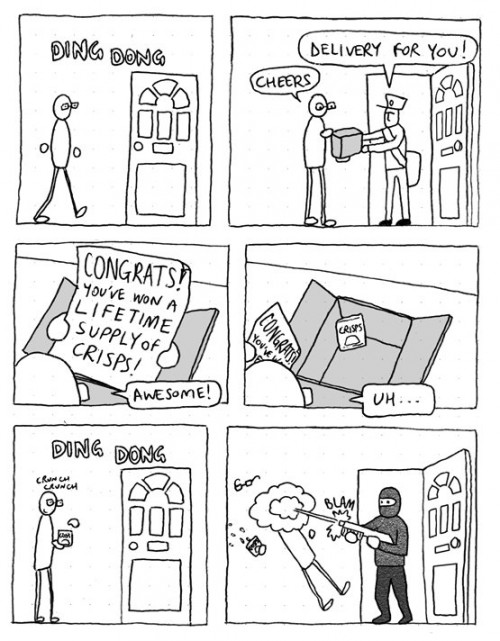 DING DONG
DELIVERY FOR YOU!
CHEERS
CONGRATS!
YOU'VE WON A
LIFETIME
SUPPLY OF
CRISPS!
AWESOME!
CONGRATS!
YOU'VE
CRISPS
UH...
DING DONG
CRUNCH
CRUNCH
BLAM